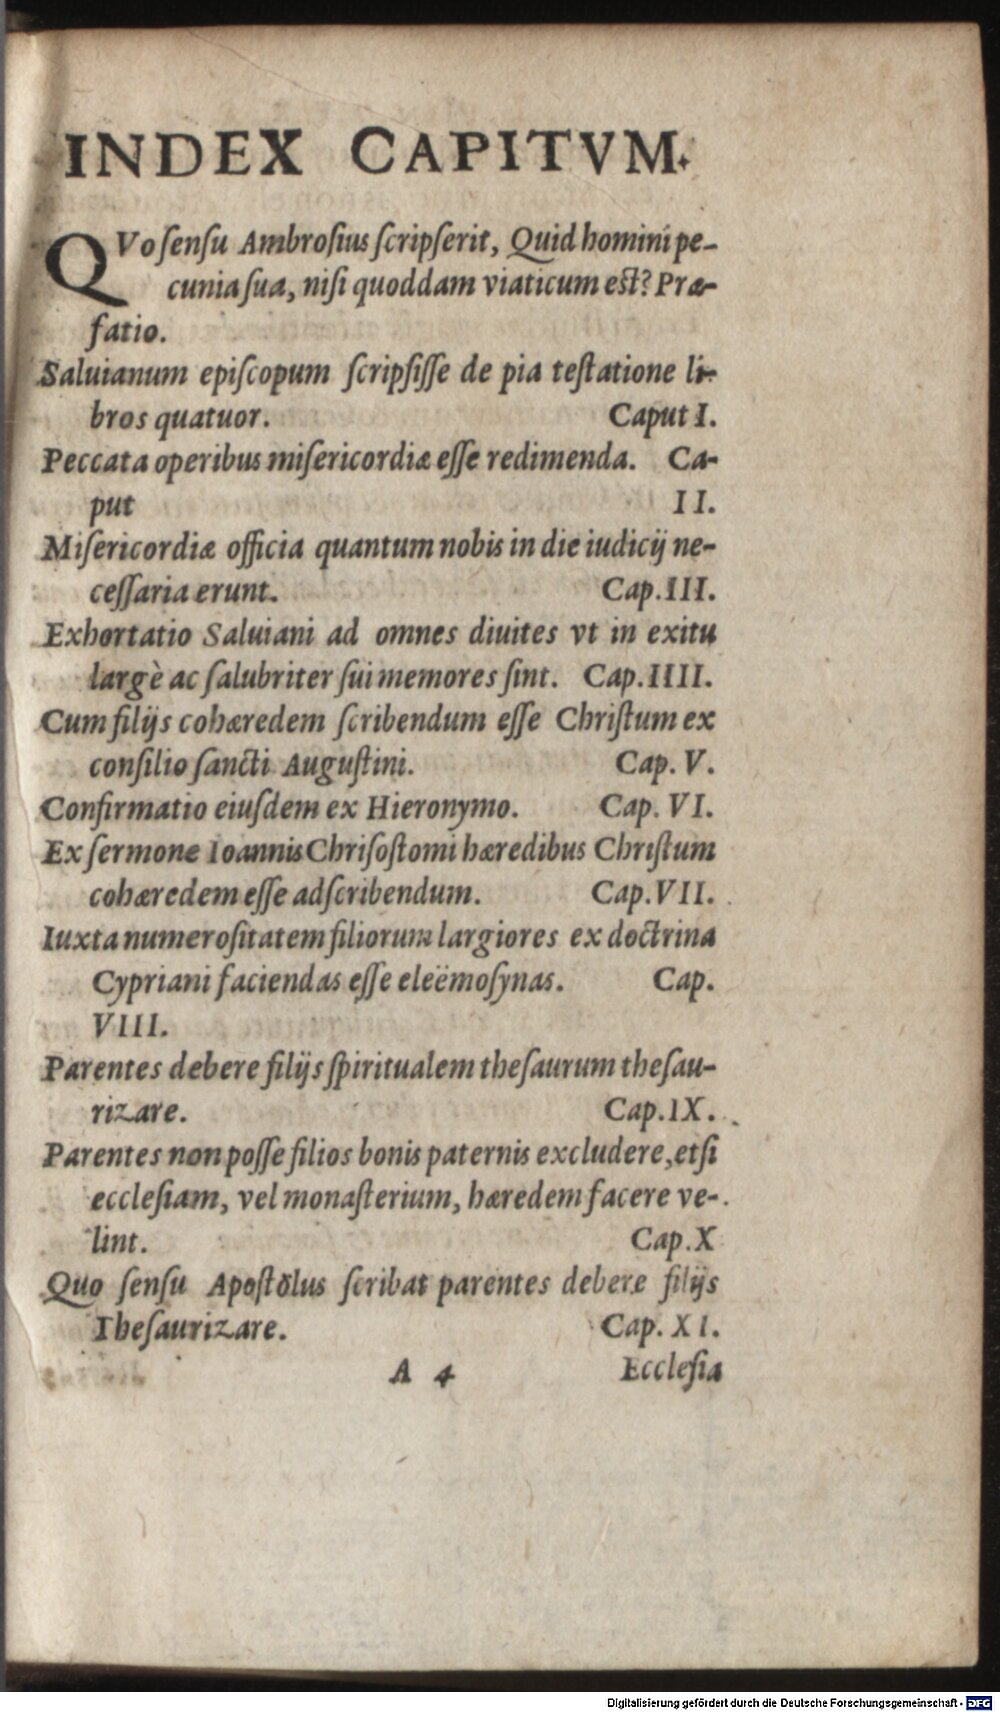 INDEX CAPITVM.
QVo ſenſu Ambroſius ſcripſerit, Quid homini pe-
cunia ſua, niſi quoddam viaticum eſt? Præ-
fatio.
Saluianum epiſcopum ſcripſiſſe de pia teſtatione li-
bros quatuor. Caput I.
Peccata operibus miſericordiæ eſſe redimenda. Ca-
put II.
Miſericordiæ officia quantum nobis in die iudicij ne-
ceſſaria erunt. Cap. III.
Exhortatio Saluiani ad omnes diuites vt in exitu
largè ac ſalubriter ſui memores ſint. Cap. IIII.
Cum filijs cohæredem ſcribendum eſſe Chriſtum ex
conſilio ſancti Auguſtini. Cap. V.
Confirmatio eiuſdem ex Hieronymo. Cap. VI.
Ex ſermone Ioannis Chriſoſtomi hæredibus Chriſtum
cohæredem eſſe adſcribendum. Cap. VII.
Iuxta numeroſitatem filiorum largiores ex doctrina
Cypriani faciendas eſſe eleëmoſynas. Cap.
VIII.
Parentes debere filijs ſpiritualem theſaurum theſau-
rizare. Cap. IX.
Parentes non poſſe filios bonis paternis excludere, etſi
eccleſiam, vel monaſterium, hæredem facere ve-
lint. Cap. X
Quo ſenſu Apoſtolus ſcribat parentes debere filijs
Theſaurizare. Cap. XI.
A 4 Eccleſia
Digitalisierung gefördert durch die Deutsche Forschungsgemeinschaft - DFG